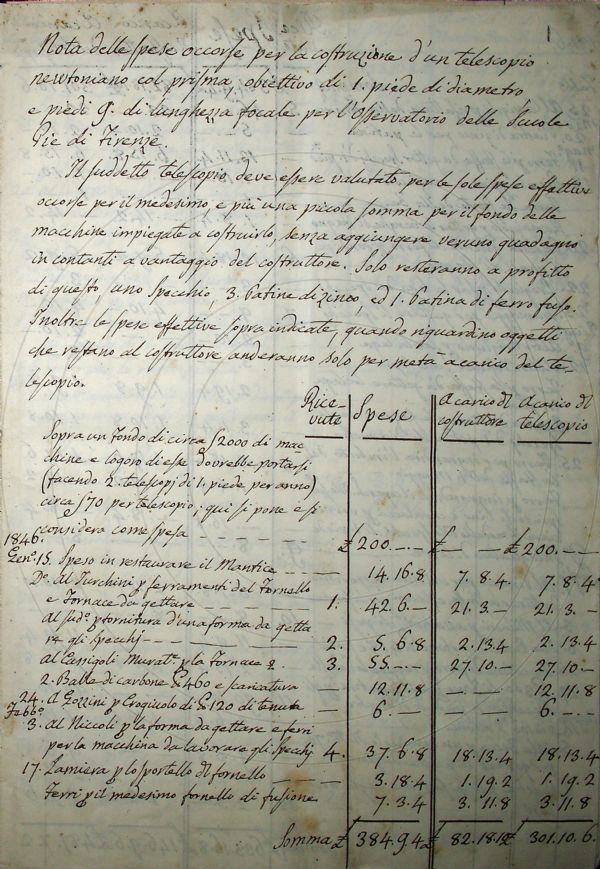 1
Nota delle spese occorse per la costruzione d'un telescopio
newtoniano col prisma, obiettivo di 1. piede di diametro
e piedi 9. di lunghezza focale per l'Osservatorio delle Scuole
Pie di Firenze.
Il suddetto telescopio deve essere valutato per le sole spese effettive
occorse per il medesimo, e più una piccola somma per il fondo delle
macchine impiegate a costruirlo, senza aggiungere veruno guadagno
in contanti a vantaggio del costruttore. Solo resteranno a profitto
di questo, uno specchio, 3. Patine di zinco, ed 1. Patina di ferro fuso.
Inoltre le spese effettive sopra indicate, quando riguardino oggetti
che restano al costruttore anderanno solo per metà a carico del te-
lescopio.
Rice- vute Spese A carico dl costruttore A carico dl telescopio
Sopra un fondo di circa 2000 di mac-
chine e logoro di esse dovrebbe portarsi
(facendo 2. telescopj di 1. piede per anno)
circa 70 per telescopio; qui si pone e si
considera come spesa £ 200.-.- £ - - £ 200.-.-
1846.
Genº. 15. Speso in restaurare il Mantice 14.16.8 7.8.4. 7.8.4
Dº. Al Turchini p ferramenti del Fornello
e Fornace da gettare 1. 42.6.- 21.3.- 21.3.-
Al sudº. p tornitura d'una forma da getta
re gli specchj 2. 5.6.8 2.13.4 2.13.4
Al Cessigoli Murat.e p la Fornace 3. 55.-.- 27.10.- 27.10.-
2. Balle di carbone 460 e scaricatura 12.11.8 -.- 12.11.8
24. A Gozzini p Crogiuolo di 120 di tenuta 6.- - 6.-.-
Febbº.
3. Al Niccoli p la forma da gettare e ferri
per la macchina da lavorare gli specchj 4. 37.6.8 18.13.4 18.13.4
17. Lamiera p lo sportello dl fornello 3.18.4 1.19.2 1.19.2
Ferri p il medesimo fornello di fusione 7.3.4 3.11.8 3.11.8
Somma £ 384.9.4 £ 82.18.10 £ 301.10.6